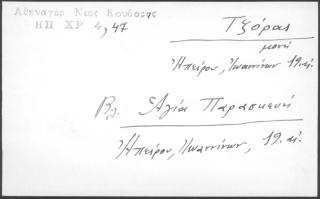 Αθεναγορ Νεος Κουβαρας
ΗΠ ΧΡ 4, 47
Τζόρας
μονή
Ἠπείρου, Ἰωαννίνων 19. αἰ.
Βλ. Ἁγία Παρασκευή
Ἠπείρου, Ἰωαννίνων, 19. αἰ.